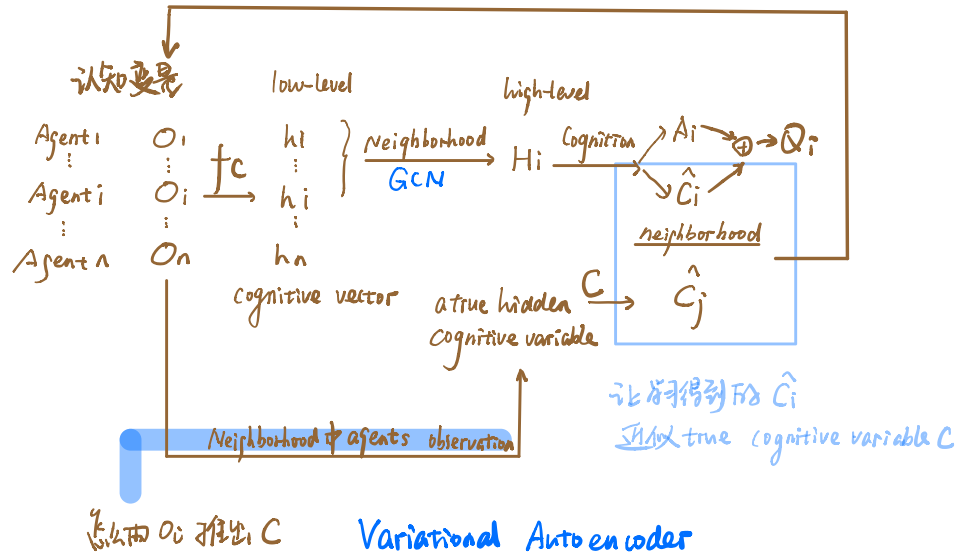 认知变量
low-level
high-level
Agent1 O1 h1
Agenti Oi fc hi
Agentn On hn
Neighborhood
GCN
Hi
Cognition
Ai
Ĉi
⊕
Qi
neighborhood
Ĉj
cognitive vector
a true hidden
cognitive variable
C
让学习得到的 Ĉi
近似 true cognitive variable C
Neighborhood中agents observation
怎么由 Oi 推出 C
Variational Autoencoder